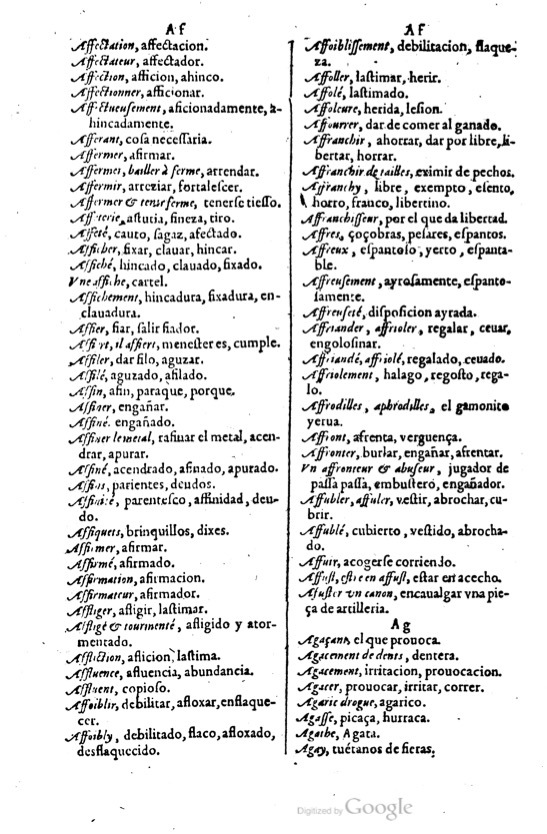 Af
Affectation, affectacion.
Affectateur, affectador.
Affection, afficion, ahinco.
Affectionner, afficionar.
Affectueusement, aficionadamente, a-
hincadamente.
Afferant, cosa necessaria.
Affermer, afirmar.
Affermer, bailler à ferme, arrendar.
Affermir, arreziar, fortalescer.
Affermer & tenir ferme, tenerse tiesso.
astutia, fineza, tiro.
Affeté, cauto, sagaz, afectado.
Afficher, fixar, clauar, hincar.
Affiché, hincado, clauado, fixado.
Vne affiche, cartel.
Affichement, hincadura, fixadura, en-
clauadura.
Affier, fiar, salir fiador.
Affiert, il affiert, menester es, cumple.
Affiler, dar filo, aguzar.
Affilé, aguzado, afilado.
Affin, afin, paraque, porque.
Affiner, engañar.
Affiné. engañado.
Affiner le metal, rafinar el metal, acen-
drar, apurar.
Affiné, acendrado, afinado, apurado.
Affins, parientes, deudos.
Affinité, parentesco, affinidad, deu-
do.
Affiquets, brinquillos, dixes.
Affirmer, afirmar.
Affirmé, afirmado.
Affirmation, afirmacion.
Affirmateur, afirmador.
Affliger, afligir, lastimar.
Affligé & tourmenté, afligido y ator-
mentado.
Affliction, aflicion, lastima.
Affluence, afluencia, abundancia.
Affluent, copioso.
Affoiblir, debilitar, afloxar, enflaque-
cer.
Affoibly, debilitado, flaco, afloxado,
desflaquecido.
Af
Affoiblissement, debilitacion, flaque-
za.
Affoller, lastimar, herir.
Affolé, lastimado.
Affoleure, herida, lesion.
Affourrer, dar de comer al ganado.
Affranchir, ahorrar, dar por libre, li-
bertar, horrar.
Affranchir de tailles, eximir de pechos.
Affranchy, libre, exempto, esento,
horro, franco, libertino.
Affranchisseur, por el que da libertad.
Affres, çoçobras, pesares, espantos.
Affreux, espantoso, yerto, espanta-
ble.
Affreusement, ayrosamente, espanto-
samente.
Affreuseté, disposicion ayrada.
Affriander, affrioler, regalar, ceuar,
engolosinar.
Affriandé, affriolé, regalado, ceuado.
Affriolement, halago, regosto, rega-
lo.
Affrodilles, aphrodilles, el gamonito
yerua.
Affront, afrenta, verguença.
Affronter, burlar, engañar, afrentar.
Vn affronteur & abuseur, jugador de
passa passa, embustero, engañador.
Affubler, affuler, vestir, abrochar, cu-
brir.
Affublé, cubierto, vestido, abrocha-
do.
Affuir, acogerse corriendo.
Affust, estre en affust, estar en acecho.
Afuster vn canon, encaualgar vna pie-
ça de artilleria.
Ag
Agaçant, el que prouoca.
Agacement de dents, dentera.
Agacement, irritacion, prouocacion.
Agacer, prouocar, irritar, correr.
Agaric drogue, agarico.
Agasse, picaça, hurraca.
Agathe, Agata.
Agay, tuétanos de fieras.
Digitized by Google